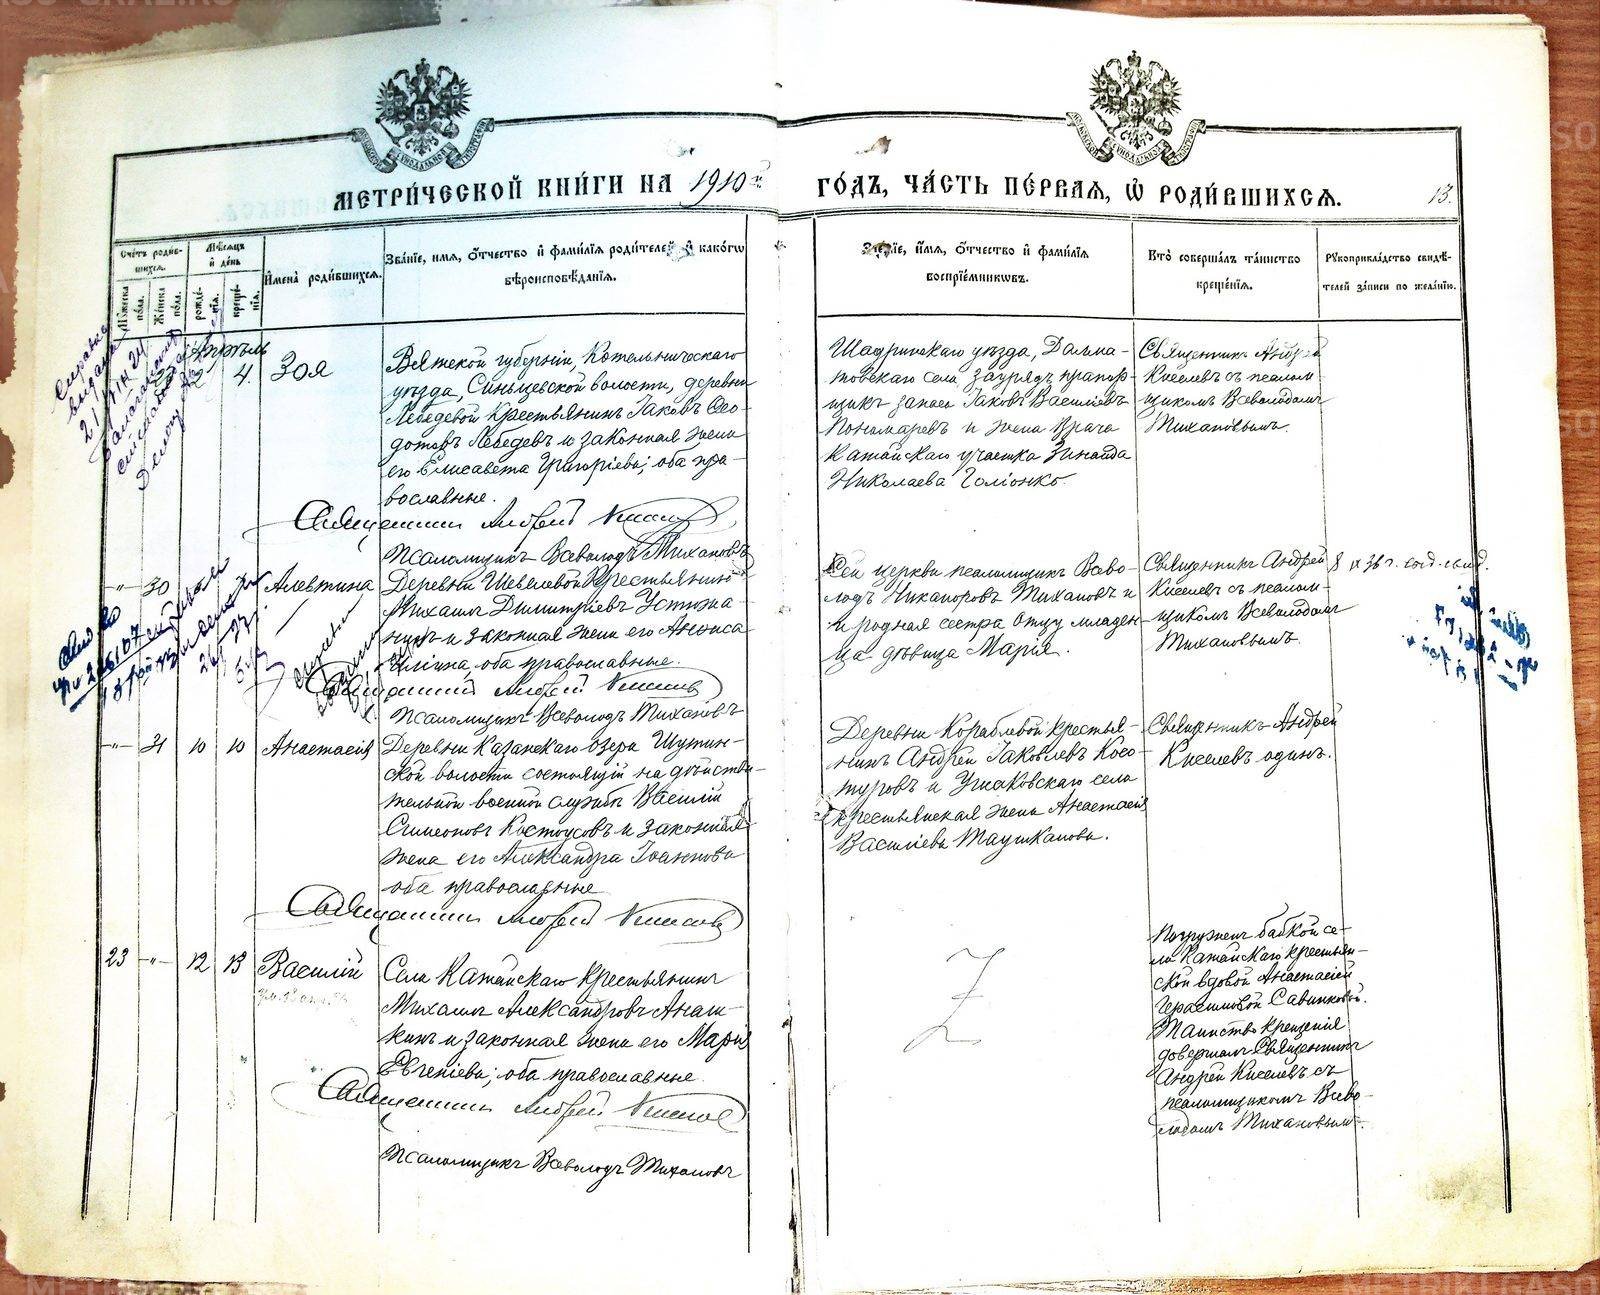 МЕТРИ́ЧЕСКОЙ КНИ́ГИ НА 1910й ГО́ДЪ, ЧА́СТЬ ПЕ́РВАЯ, Ѡ҆ РОДИ́ВШИХСЯ.
13.
Сче́тъ роди́в-
шихся.
Му́жеска по́ла.
Же́нска по́ла.
Мѣ́сяцъ
и҆ де́нь
рожде́-
нія.
креще́-
нія.
И҆мена̀ роди́вшихся.
Зва́ніе, и́мя, ѻ҆́тчество и҆ фами́лія роди́телей, и҆ како́гѡ
вѣроисповѣ́данія.
Зва́ніе, и҆́мя, ѻ҆́тчество и҆ фами́лія
воспріе́мниковъ.
Кто̀ соверша́лъ та́инство
креще́нія.
Рꙋкоприкла́дство свидѣ́-
телей за́писи по жела́нію.
Апрѣль
4.
Зоя
Вятской губерніи, Котельническаго
уѣзда, волости, деревни
Лебедевой крестьянинъ Іаковъ Ѳео-
дотовъ Лебедевъ и законная жена
его Елисавета Григоріева; оба пра-
вославные.
Священникъ Андрей Киселевъ
Псаломщикъ Всеволодъ Тихановъ
Шадринскаго уѣзда, Далма-
товскаго села, зауряд прапор-
щикъ запаса Іаковъ Василіевъ
Пономаревъ и жена врача
Катайскаго участка Зинаида
Николаева
Священникъ Андрей
Киселевъ съ псалом-
щикомъ Всеволодомъ
Тихановымъ.
-„- 30
Алевтина
Деревни Шевелевой крестьянинъ
Михаилъ Димитріевъ Устюжа-
нинъ и законная жена его Анѳиса
оба православные.
Священникъ Андрей Киселевъ
Псаломщикъ Всеволодъ Тихановъ
Сей церкви псаломщикъ Всево-
лодъ Никаноровъ Тихановъ и
и родная сестра отцу младен-
ца дѣвица Марія.
Священникъ Андрей
Киселевъ съ псалом-
щикомъ Всеволодомъ
Тихановымъ.
-„- 31 10 10
Анастасія
Деревни Казанскаго озера Шутин-
ской волости состоящій на дѣйстви-
тельной военной службѣ Василій
Симеоновъ Костоусовъ и законная
жена его Александра Іоаннова
оба православные
Священникъ Андрей Киселевъ
Деревни Кораблевой крестья-
нинъ Андрей Іаковлевъ Косо-
туровъ и Ушаковскаго села
крестьянская жена Анастасія
Василіева Таушканова.
Священникъ Андрей
Киселевъ одинъ.
23 -„- 12 13
Василій
Села Катайскаго крестьянинъ
Михаилъ Александровъ Анаш-
кинъ и законная жена его Марія
Евгеніева; оба православные.
Священникъ Андрей Киселевъ
Псаломщикъ Всеволодъ Тихановъ
Z
Погруженъ бабкой се-
ла Катайскаго крестьян-
ской вдовой Анастасіей
Герасимовой Савинковой.
Таинство крещенія
довершалъ Священникъ
Андрей Киселевъ съ
псаломщикомъ Всево-
лодомъ Тихановымъ.